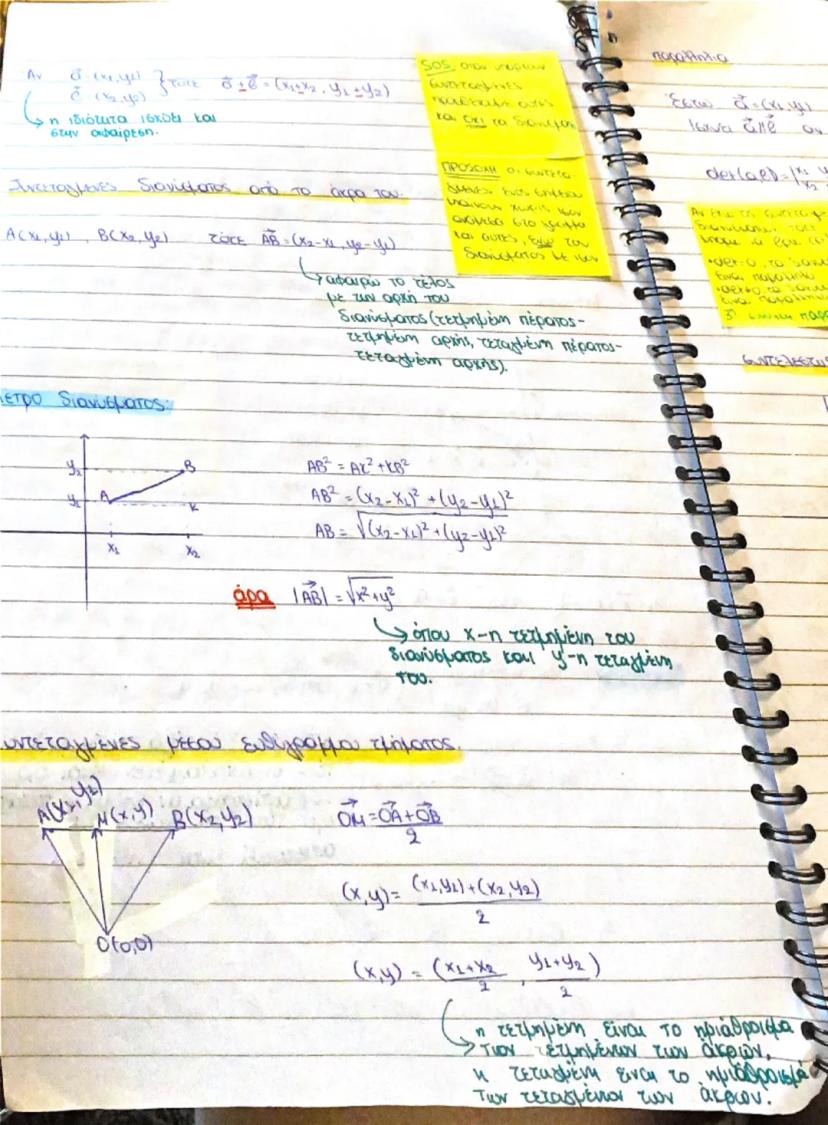 Αν α⃗ (x₁,y₁)
β⃗ (x₂,y₂) } τότε α⃗ ± β⃗ = (x₁±x₂, y₁±y₂)
η ιδιότητα ισχύει και
στην αφαίρεση.
SOS: όταν υπάρχουν
συντεταγμένες
προσθέτουμε αυτές
και όχι τα διανύσματα
ΠΡΟΣΟΧΗ οι συντεταγ-
μένες ενός σημείου
χωρίς ίσον
και αυτές, ενώ του
διανύσματος με ίσον
Συντεταγμένες διανύσματος από τα άκρα του.
A(x₁,y₁) , B(x₂,y₂) τότε AB⃗ = (x₂-x₁, y₂-y₁)
αφαιρώ το τέλος
με την αρχή του
διανύσματος (τετμημένη πέρατος-
τετμημένη αρχής, τεταγμένη πέρατος-
τεταγμένη αρχής).
έτρο διανύσματος:
y₂ B
y₁ A K
x₁ x₂
AB² = AK² + KB²
AB² = (x₂-x₁)² + (y₂-y₁)²
AB = √(x₂-x₁)² + (y₂-y₁)²
άρα |AB⃗| = √x²+y²
όπου x-η τετμημένη του
διανύσματος και y-η τεταγμένη
του.
υντεταγμένες μέσου ευθύγραμμου τμήματος.
A(x₁,y₁) M(x,y) B(x₂,y₂)
O(0,0)
OM⃗ = OA⃗ + OB⃗ / 2
(x,y) = (x₁,y₁)+(x₂,y₂) / 2
(x,y) = (x₁+x₂ / 2 , y₁+y₂ / 2)
η τετμημένη είναι το ημιάθροισμα
των τετμημένων των άκρων,
η τεταγμένη είναι το ημιάθροισμα
των τεταγμένων των άκρων.
παραλληλία
Έστω α⃗ = (x₁,y₁)
Ισχύει α⃗//β⃗ αν
det(α,β) = |x₁ y
x₂
Αν έχω τις συντεταγ-
είναι παράλληλα
συντελεστής